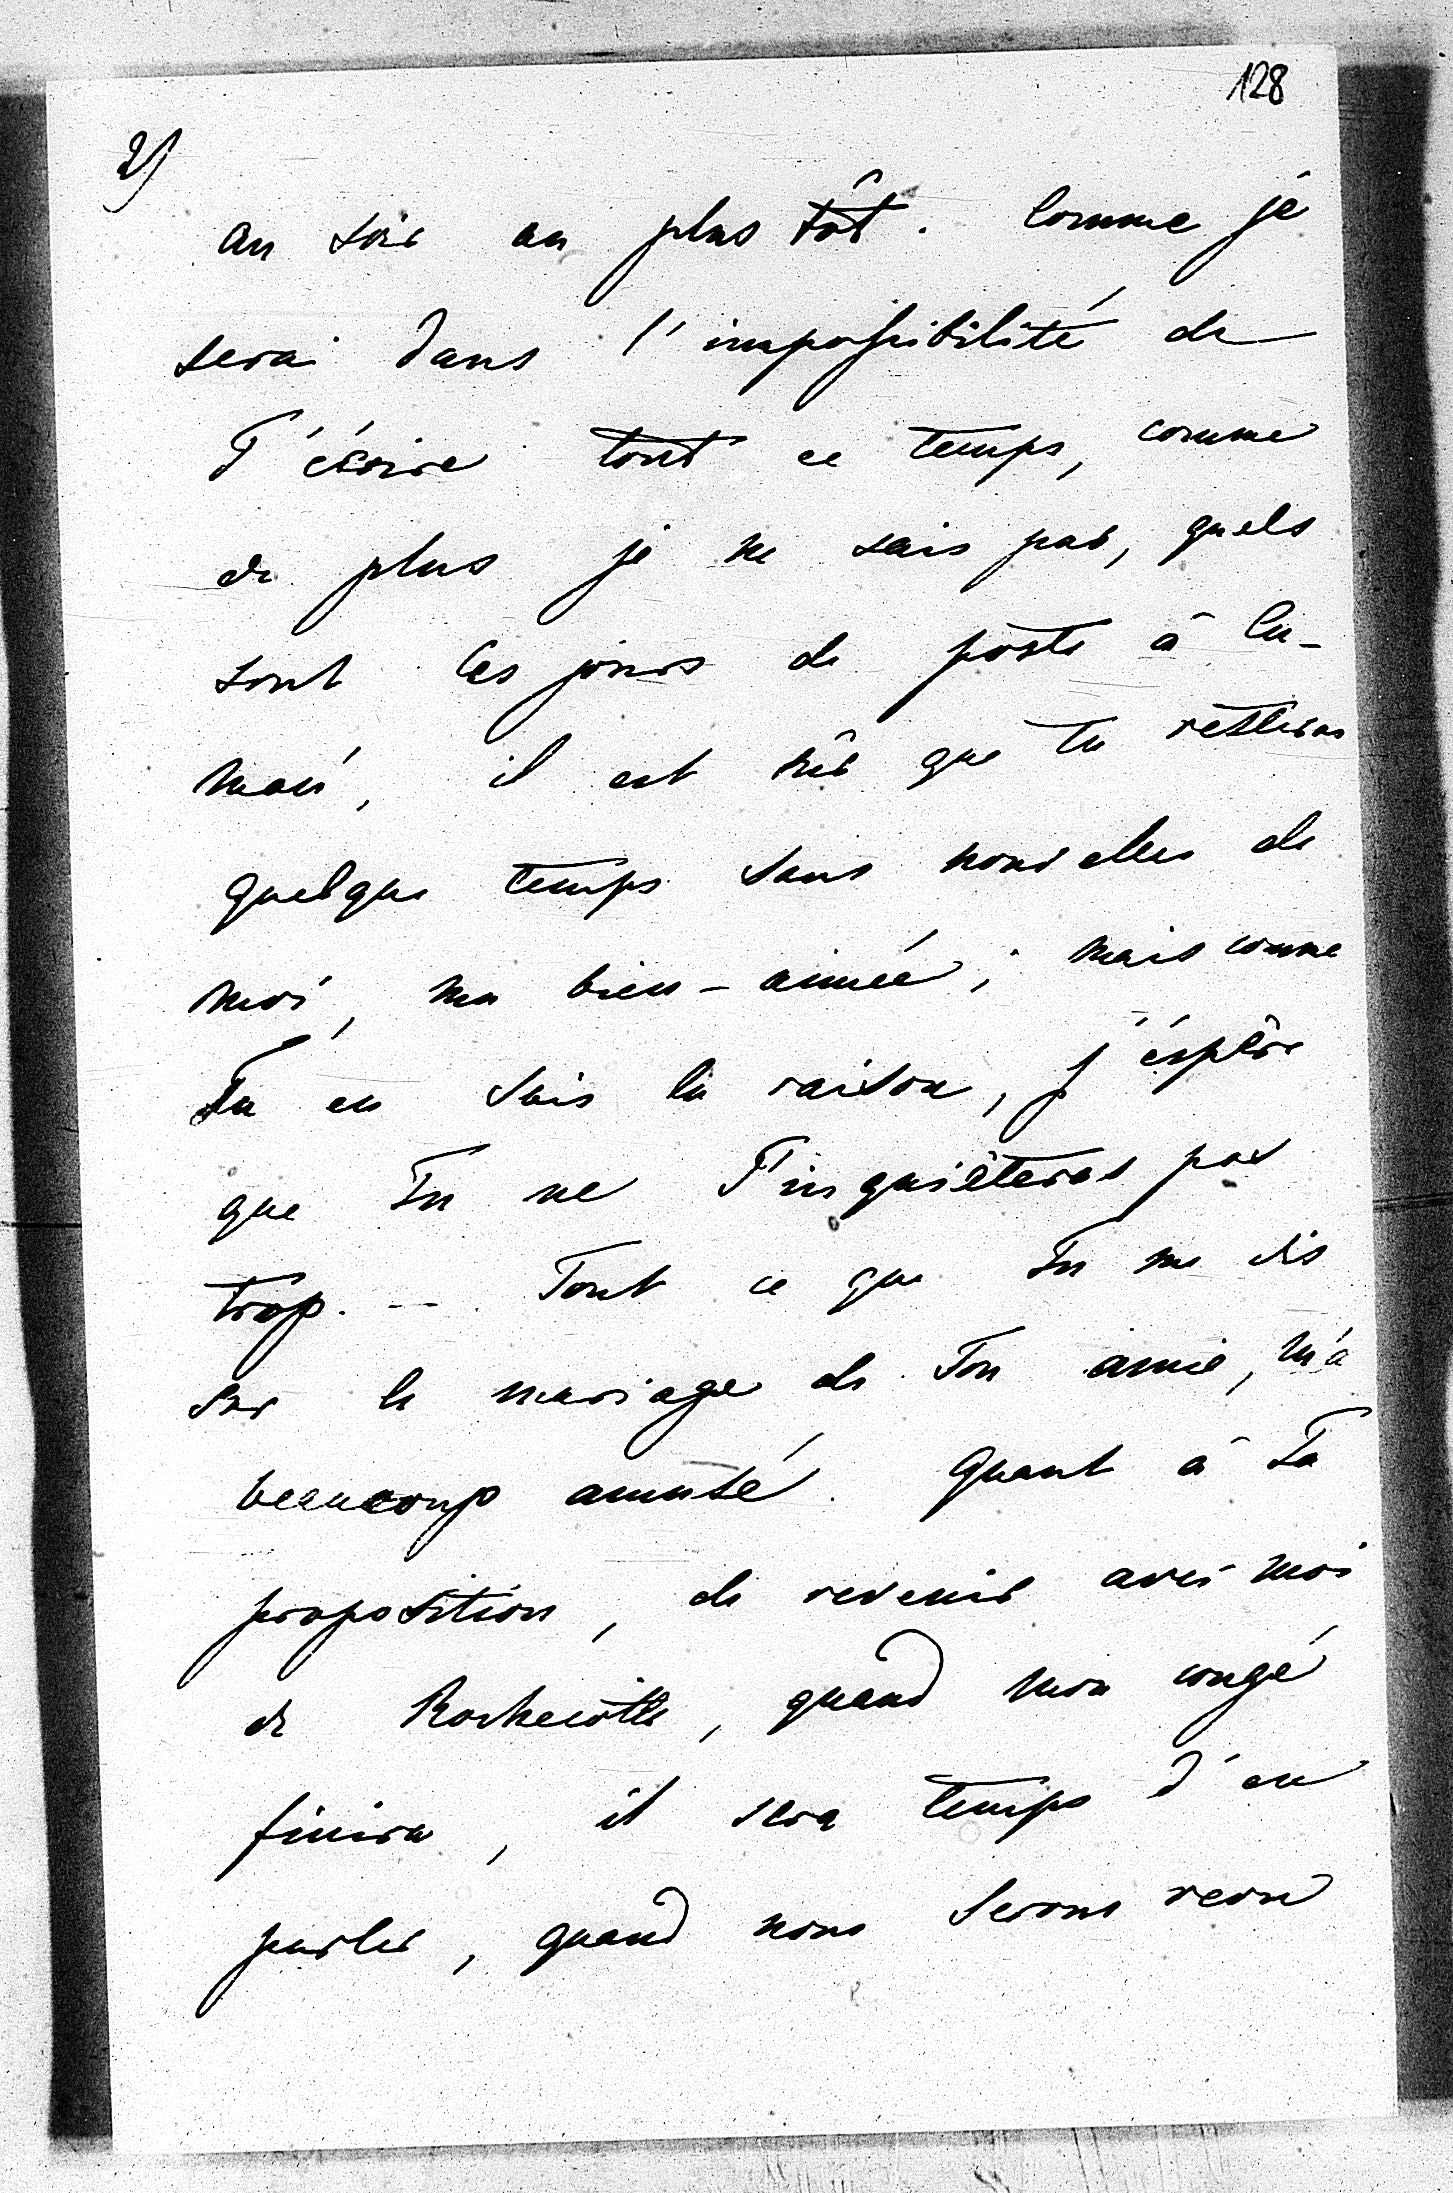 128
2)
au soir au plus tôt. Comme je
serai dans l'impossibilité de
T'écrire tout ce temps, comme
de plus je ne sais pas, quels
sont les jours de poste à Cu-
mań, il est sûr que Tu resteras
quelque temps sans nouvelles de
moi, ma bien-aimée; mais comme
Tu en sais la raison, j'éspère
que Tu ne T'inquièteras pas
trop. - Tout ce que Tu me dis
sur le mariage de Ton amie, m'a
beaucoup amusé. Quant à Ta
proposition, de revenir avec moi
de Rochecotte, quand mon congé
finira, il sera temps d'en
parler, quand nous serons réuni